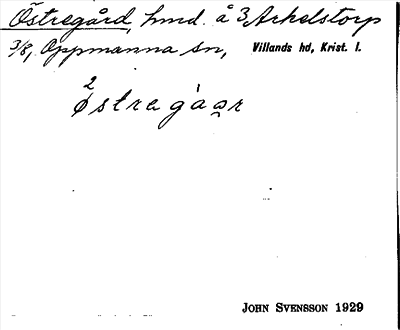 Östregård, hmd. å 3 Arkelstorp
3/8, Oppmanna sn, Villands hd, Krist. l.
2
östregàa̯r
JOHN SVENSSON 1929